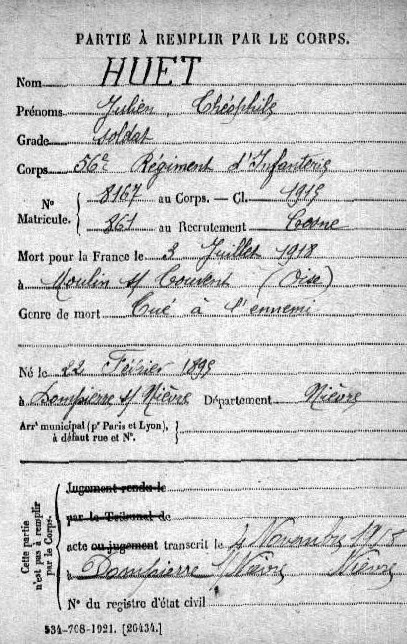 PARTIE À REMPLIR PAR LE CORPS.
Nom HUET
Prénoms Julien, Théophile
Grade soldat
Corps 56e Régiment d'Infanterie
N° Matricule. 8167 au Corps. — Cl. 1915
861 au Recrutement Cosne
Mort pour la France le 3 Juillet 1918
à Moulin s/ Touvent (Oise)
Genre de mort Tué à l'ennemi
Né le 22 Février 1895
à Dompierre s/ Nièvre Département Nièvre
Arrt municipal (pr Paris et Lyon), à défaut rue et N°.
Cette partie n'est pas à remplir par le Corps.
Jugement rendu le
par le Tribunal de
acte ou jugement transcrit le 4 Novembre 1918
à Dompierre s/Nièvre Nièvre
N° du registre d'état civil
534-708-1921. [26434.]